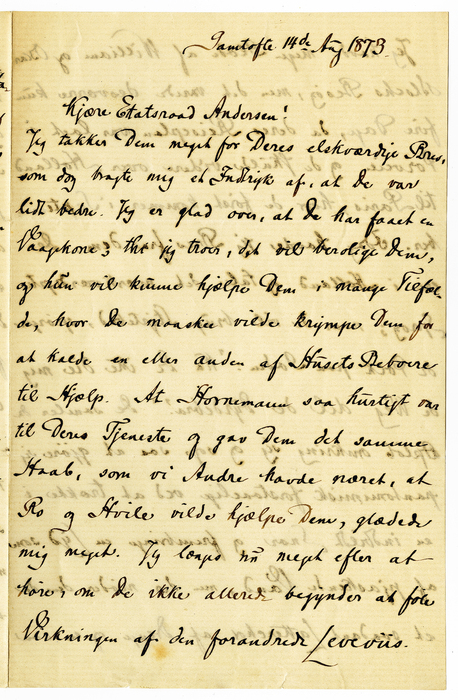 Jamtofte 14de Aug 1873.
Kjære Etatsraad Andersen!
Jeg takker Dem meget for Deres elskværdige Brev,
som dog bragte mig et Indtryk af, at De var
lidt bedre. Jeg er glad over, at De har faaet en
Vaagekone; thi jeg troer, det vil berolige Dem,
og hun vil kunne hjælpe Dem i mange Tilfæl-
de, hvor De maaskee vilde krympe Dem for
at kalde en eller anden af Husets Beboere
til Hjælp. At Hornemann saa hurtigt var
til Deres Tjeneste og gav Dem det samme
Haab, som vi Andre havde næret, at
Ro og Hvile vilde hjælpe Dem, glædede
mig meget. Jeg længes nu meget efter at
høre, om De ikke allerede begynder at føle
Virkningen af den forandrede Leveviis.